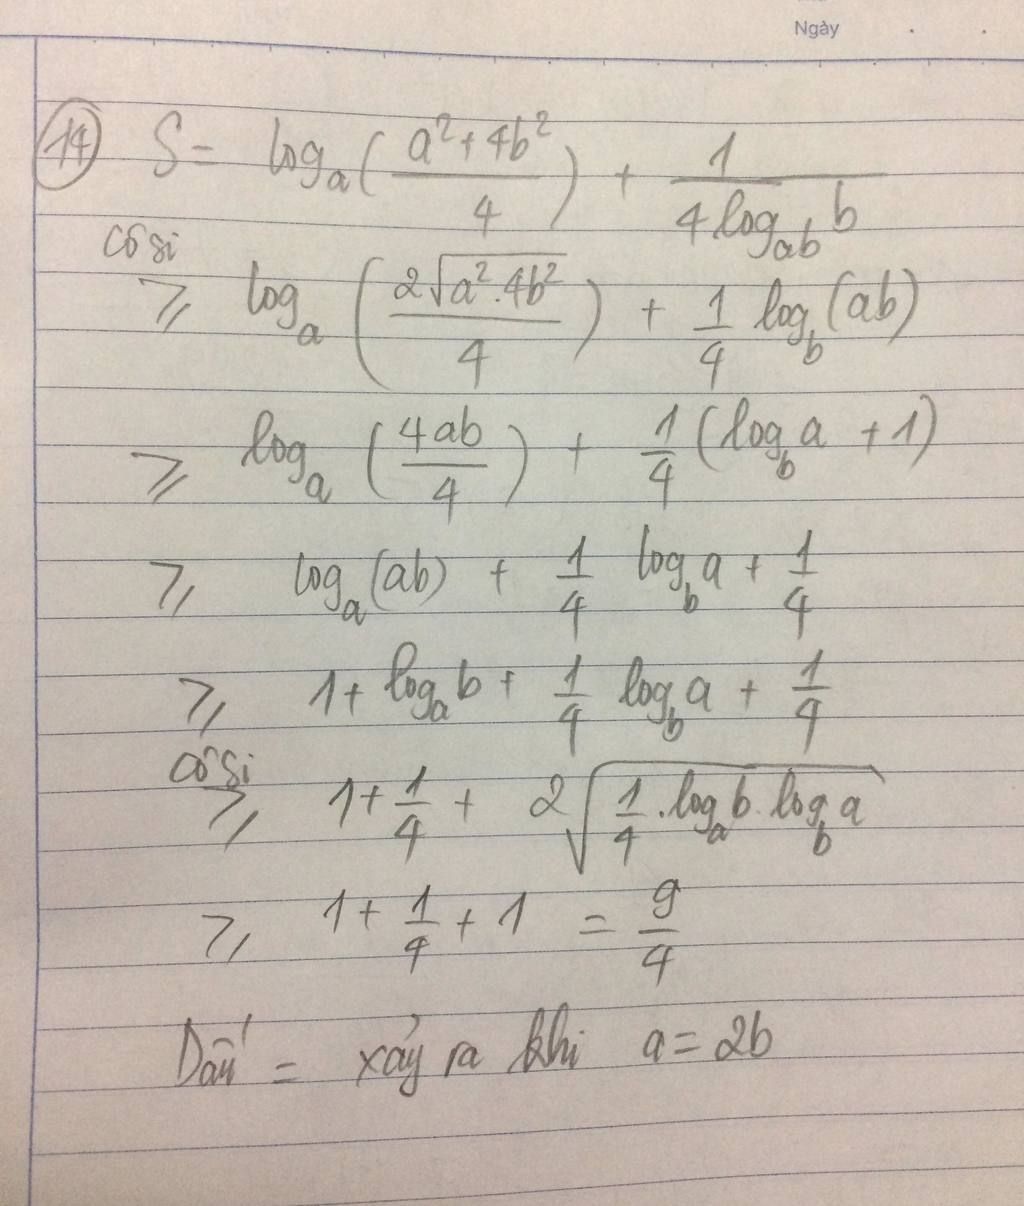 Ngày
14 S = log_a((a² + 4b²)/4) + 1/(4 log_{ab} b)
cô si
≥ log_a((2√(a².4b²))/4) + 1/4 log_b(ab)
≥ log_a(4ab/4) + 1/4 (log_b a + 1)
≥ log_a(ab) + 1/4 log_b a + 1/4
≥ 1 + log_a b + 1/4 log_b a + 1/4
cô si
≥ 1 + 1/4 + 2√(1/4 . log_a b . log_b a)
≥ 1 + 1/4 + 1 = 9/4
Dấu = xảy ra khi a = 2b